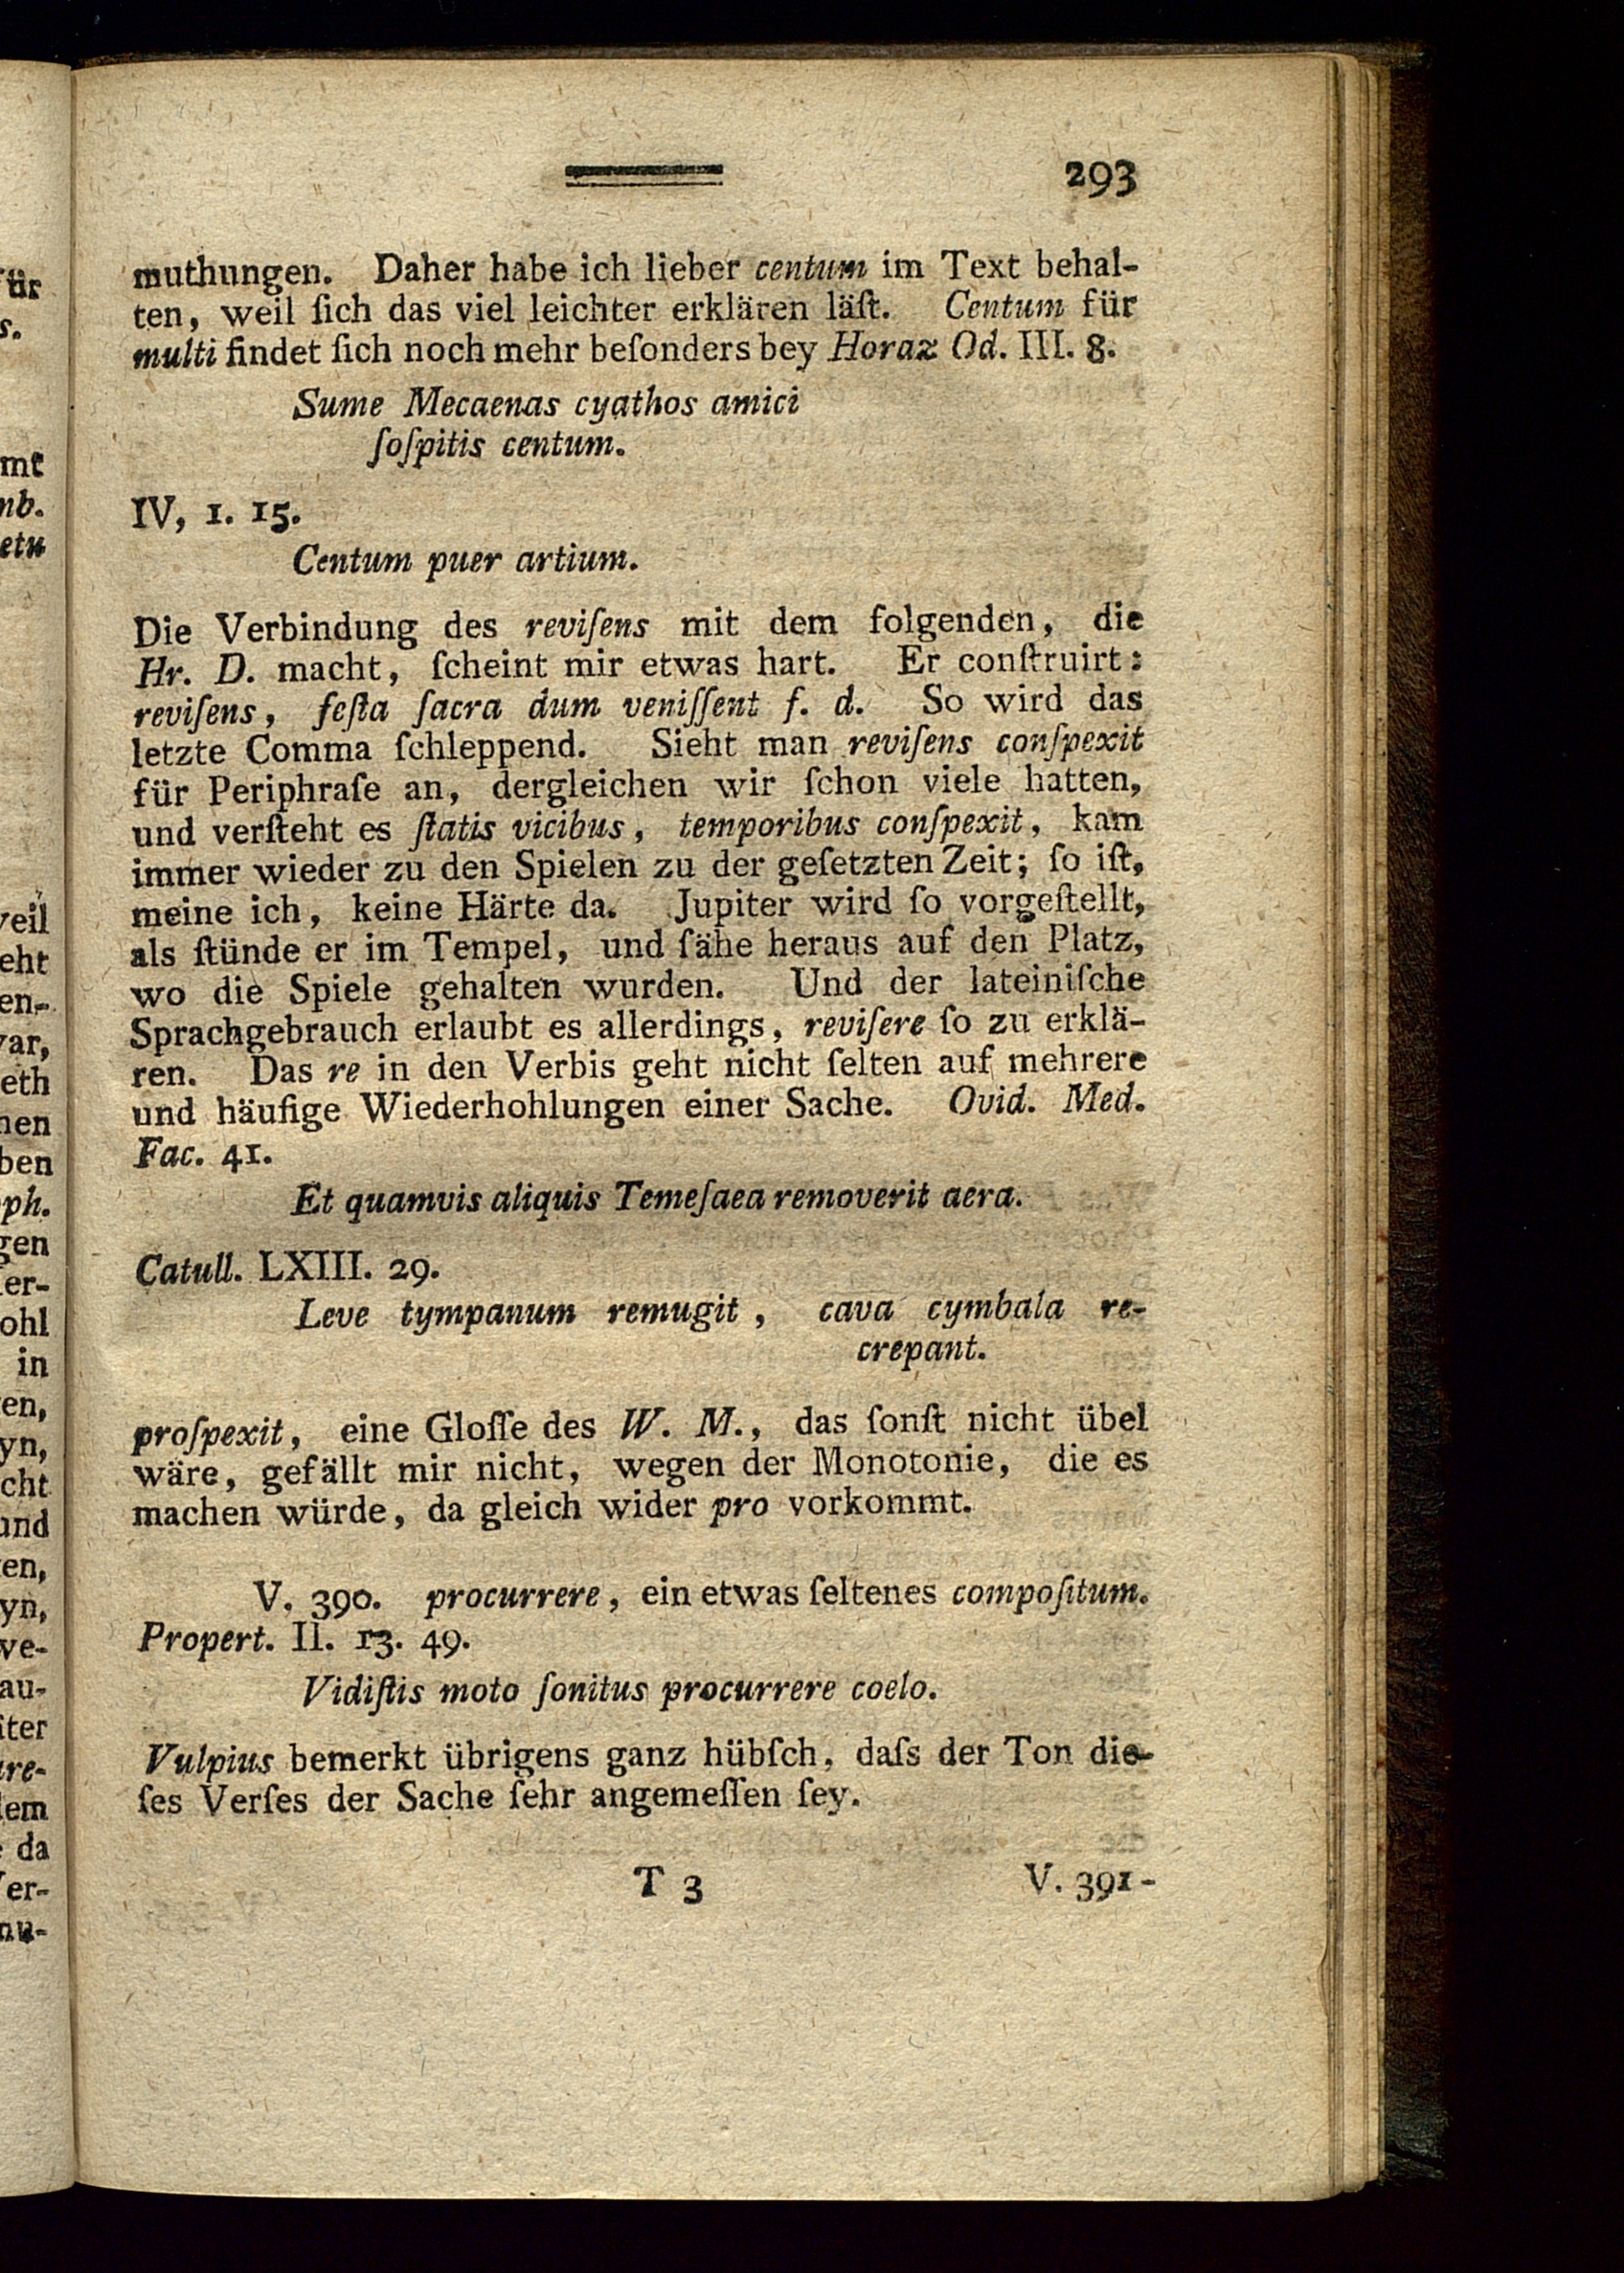 293
muthungen. Daher habe ich lieber centum im Text behal-
ten, weil ſich das viel leichter erklären läſt. Centum für
multi findet ſich noch mehr beſonders bey Horaz Od. III. 8.
Sume Mecaenas cyathos amici
ſoſpitis centum.
IV, 1. 15.
Centum puer artium.
Die Verbindung des reviſens mit dem folgenden, die
Hr. D. macht, ſcheint mir etwas hart. Er conſtruirt:
reviſens, feſta ſacra dum veniſſent f. d. So wird das
letzte Comma ſchleppend. Sieht man reviſens conſpexit
für Periphraſe an, dergleichen wir ſchon viele hatten,
und verſteht es ſtatis vicibus, temporibus conſpexit, kam
immer wieder zu den Spielen zu der geſetzten Zeit; ſo iſt,
meine ich, keine Härte da. Jupiter wird ſo vorgeſtellt,
als ſtünde er im Tempel, und ſähe heraus auf den Platz,
wo die Spiele gehalten wurden. Und der lateiniſche
Sprachgebrauch erlaubt es allerdings, reviſere ſo zu erklä-
ren. Das re in den Verbis geht nicht ſelten auf mehrere
und häufige Wiederhohlungen einer Sache. Ovid. Med.
Fac. 41.
Et quamvis aliquis Temeſaea removerit aera.
Catull. LXIII. 29.
Leve tympanum remugit, cava cymbala re-
crepant.
proſpexit, eine Gloſſe des W. M., das ſonſt nicht übel
wäre, gefällt mir nicht, wegen der Monotonie, die es
machen würde, da gleich wider pro vorkommt.
V. 390. procurrere, ein etwas ſeltenes compoſitum.
Propert. II. 13. 49.
Vidiſtis moto ſonitus procurrere coelo.
Vulpius bemerkt übrigens ganz hübſch, daſs der Ton die-
ſes Verſes der Sache ſehr angemeſſen ſey.
T 3 V. 391-